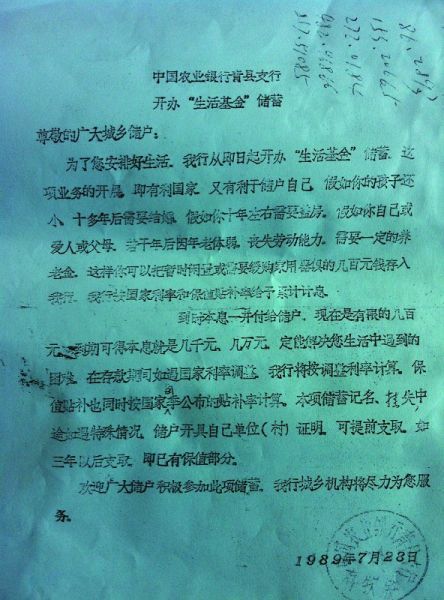 中国农业银行青县支行
开办“生活基金”储蓄
尊敬的广大城乡储户：
为了您安排好生活，我行从即日起开办“生活基金”储蓄。这
项业务的开展，即有利国家，又有利于储户自己，假如你的孩子还
小，十多年后需要结婚，假如你十年左右需要盖房，假如你自己或
爱人或父母，若干年后因年老体弱，丧失劳动能力，需要一定的养
老金，这样你可以把暂时闲置或需要缓购家用器俱的几百元钱存入
我行，我行按国家利率和保值贴补率给予累计计息。
到时本息一并付给储户，现在是有限的几百
元，到期可得本息就是几千元、几万元，定能解决您生活中遇到的
困难，在存款期间如遇国家利率调整，我行将按调整利率计算。保
值贴补也同时按国家季公布的贴补率计算。本项储蓄记名、挂失中
途如遇特殊情况，储户开具自己单位（村）证明，可提前支取，如
三年以后支取，即已有保值部分。
欢迎广大储户积极参加此项储蓄，我行城乡机构将尽力为您服
务。
1989年7月23日